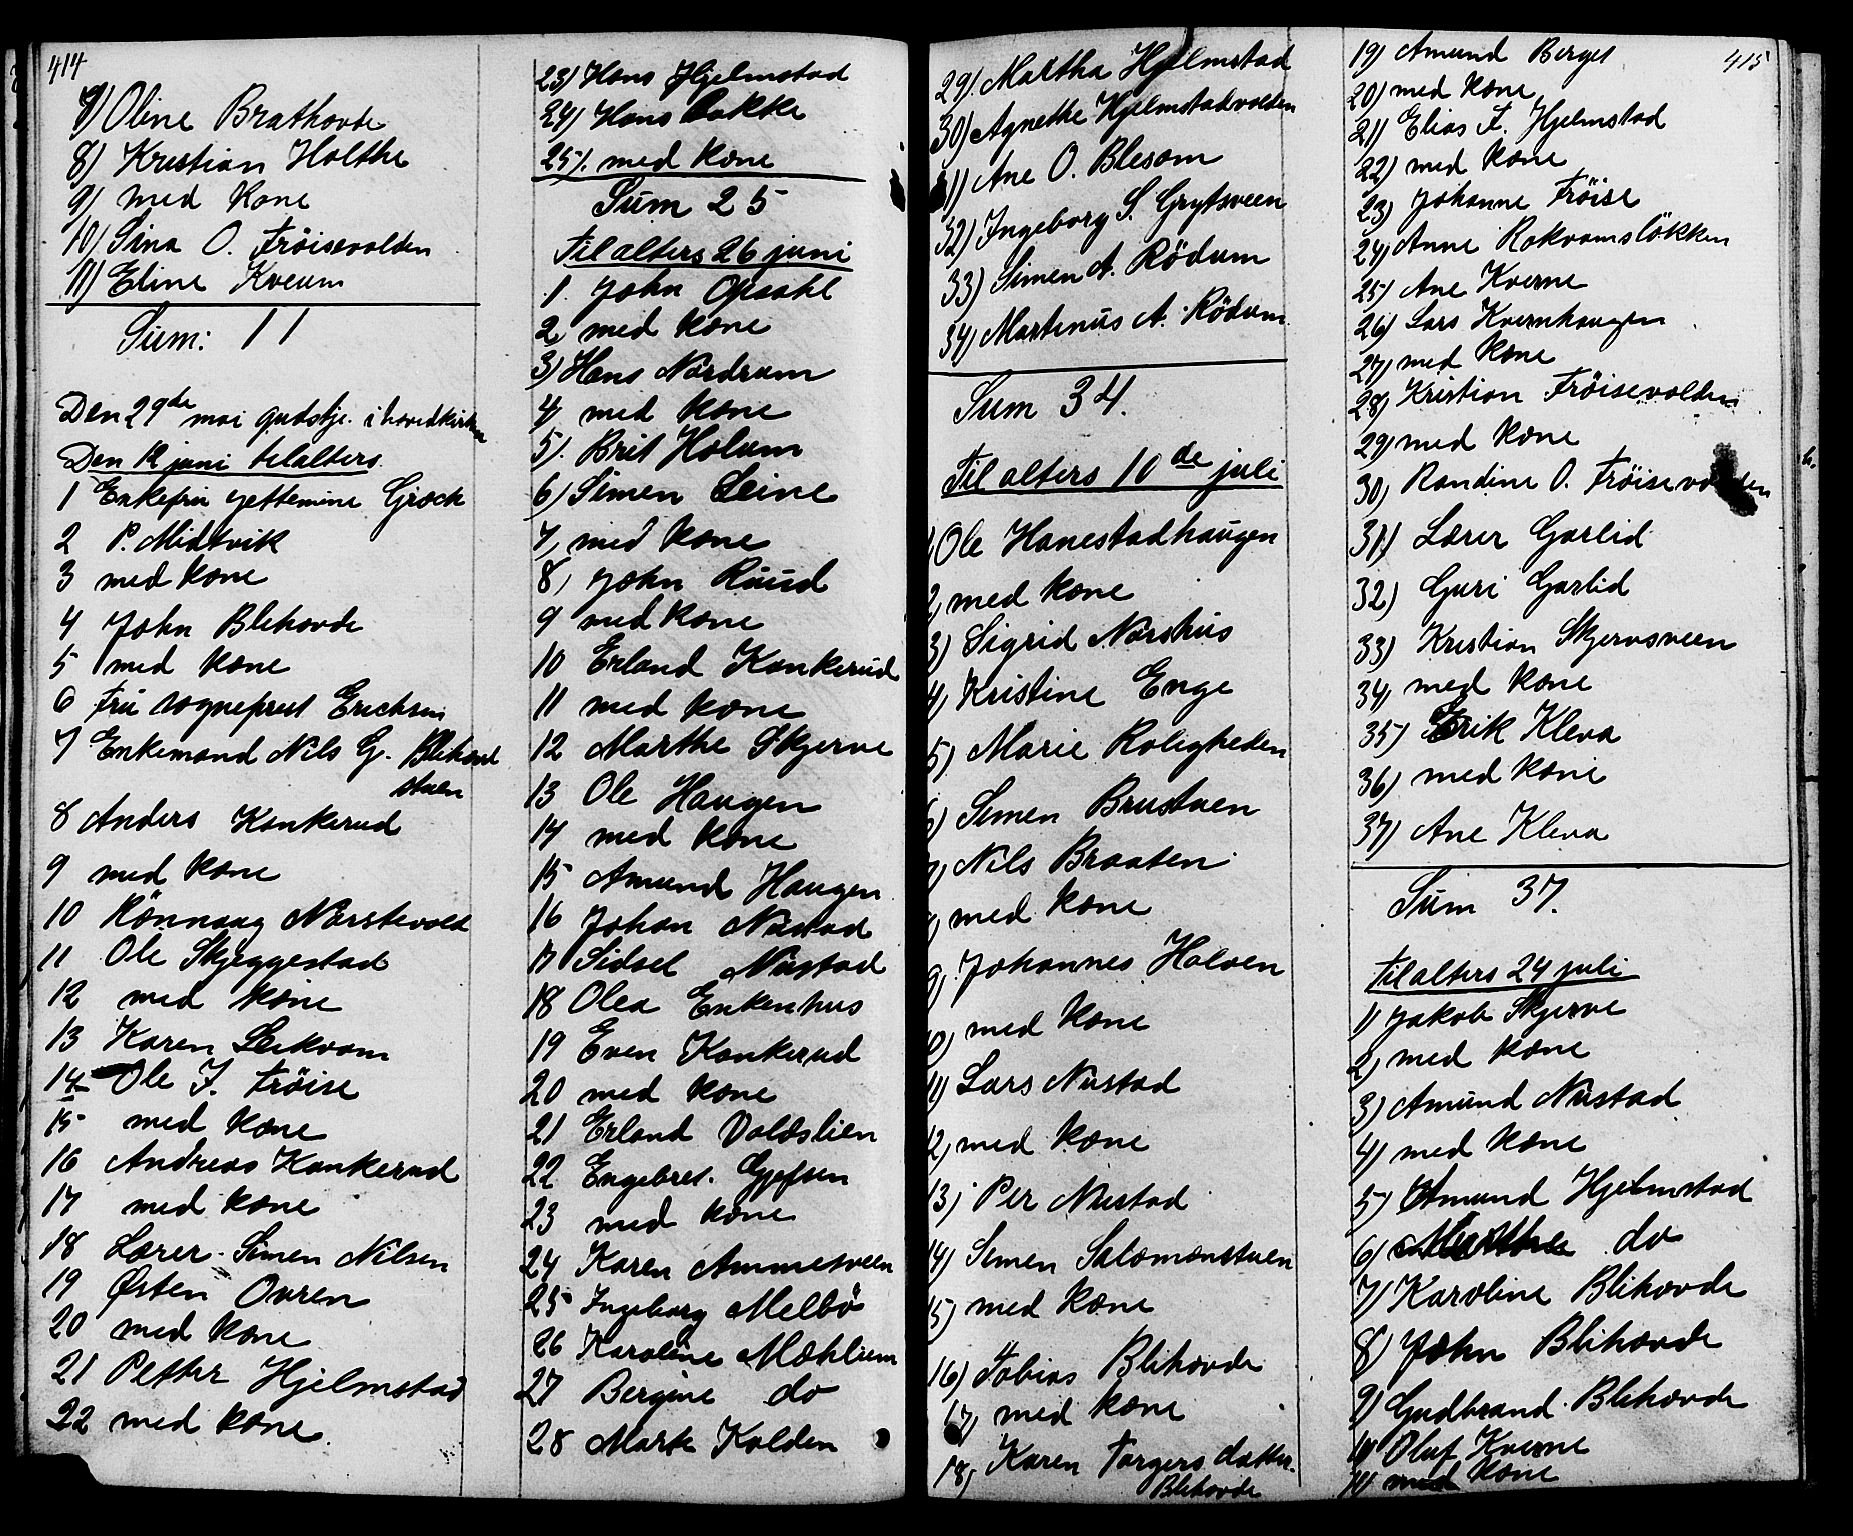 414
7) Oline Brathovde
8) Kristian Holthe
9) med Kone
10) Sina O. Fröisevolden
11) Eline Kveum
Sum: 11
Den 29de mai gudstje. i hovedkirken
Den 12 juni tilalters
1 Enkefru Jettemine Grock
2 P. Midtvik
3 med Kone
4 John Blihovde
5 med Kone
6 Fru sogneprest Erichsen
7 Enkemand Nils G. Blihovd
stuen
8 Anders Kankerud
9 med Kone
10 Rönnaag Norstevold
11 Ole Skjeggestad
12 med Kone
13 Karen Leikvam
14 Ole J. Fröise
15 med Kone
16 Andreas Kankerud
17 med Kone
18 Lærer Simen Nilsen
19 Østen Ouren
20 med Kone
21 Petter Hjelmstad
22 med Kone
23) Hans Hjelmstad
24) Hans Bakke
25). med Kone
Sum 25
Til alters 26 juni
1. John Opsahl
2 med Kone
3) Hans Nordrum
4) med Kone
5). Brit Holum
6) Simen Leine
7, med Kone
8) John Ruud
9 med Kone
10 Erland Kankerud
11 med Kone
12 Marthe Skjerve
13 Ole Haugen
14 med Kone
15 Amund Haugen
16 Johan Nustad
17 Sidsel Nustad
18 Olea Enkenhus
19 Even Kankerud
20 med Kone
21 Erland Dalæslien
22 Engebret. Gjefsen
23 med Kone
24 Karen Ammesveen
25 Ingeborg Melbö
26 Karoline Mæhlium
27 Bergine do
28 Marte Kolden
415
29) Martha Hjelmstad
30) Agnethe Hjelmstadvolden
31) Ane O. Blesom
32) Ingeborg S. Grytsveen
33) Simen A. Rödum
34) Martinus A. Rödum
Sum 34.
Til alters 10de juli
1, Ole Hanestadhaugen
2, med Kone
3) Sigrid Norshus
4) Kristine Enge
5) Marie Roligheden
6) Simen Brustuen
7) Nils Braaten
8, med Kone
9) Johannes Halven
10) med Kone
11) Lars Nustad
12, med Kone
13) Per Nustad
14) Simen Salomonstuen
15) med Kone
16) Tobias Blihovde
17) med Kone
18, Karen Torgersdatter.
Blihovde
19) Amund Berget
20) med Kone
21) Elias F. Hjelmstad
22) med Kone
23) Johanne Fröise
24) Anne Rokvamslökken
25) Ane Kverne
26) Lars Kvernhaugen
27) med Kone
28) Kristian Fröisevolden
29) med Kone
30) Randine O. Fröisevolden
31) Lærer Garlid
32) Guri Garlid
33) Kristian Skjervsveen
34) med Kone
35) Erik Kleva
36) med Kone
37) Ane Kleva
Sum 37.
Til alters 24 juli
1) Jakob Skjerve
2) med Kone
3) Amund Nustad
4) med Kone
5) Amund Hjelmstad
6) Marthe do
7) Karoline Blihovde
8) John Blihovde
9) Gudbrand Blihovde
10) Oluf Kverne
11) med Kone